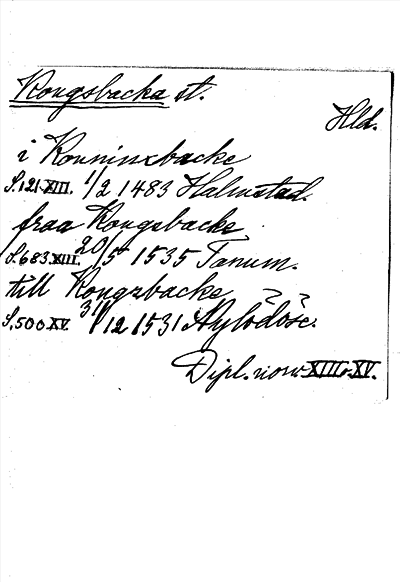 Kongsbacka st.
Hld.
i Konninxbacke
S.121.XIII. 1/2 1483 Halmstad.
fraa Kongsbacke
S.683.XIII. 20/5 1535 Tanum.
till Kongxbacke
S.500.XV. 31/12 1531 Nylödöse.
Dipl. norv. XIII o. XV.